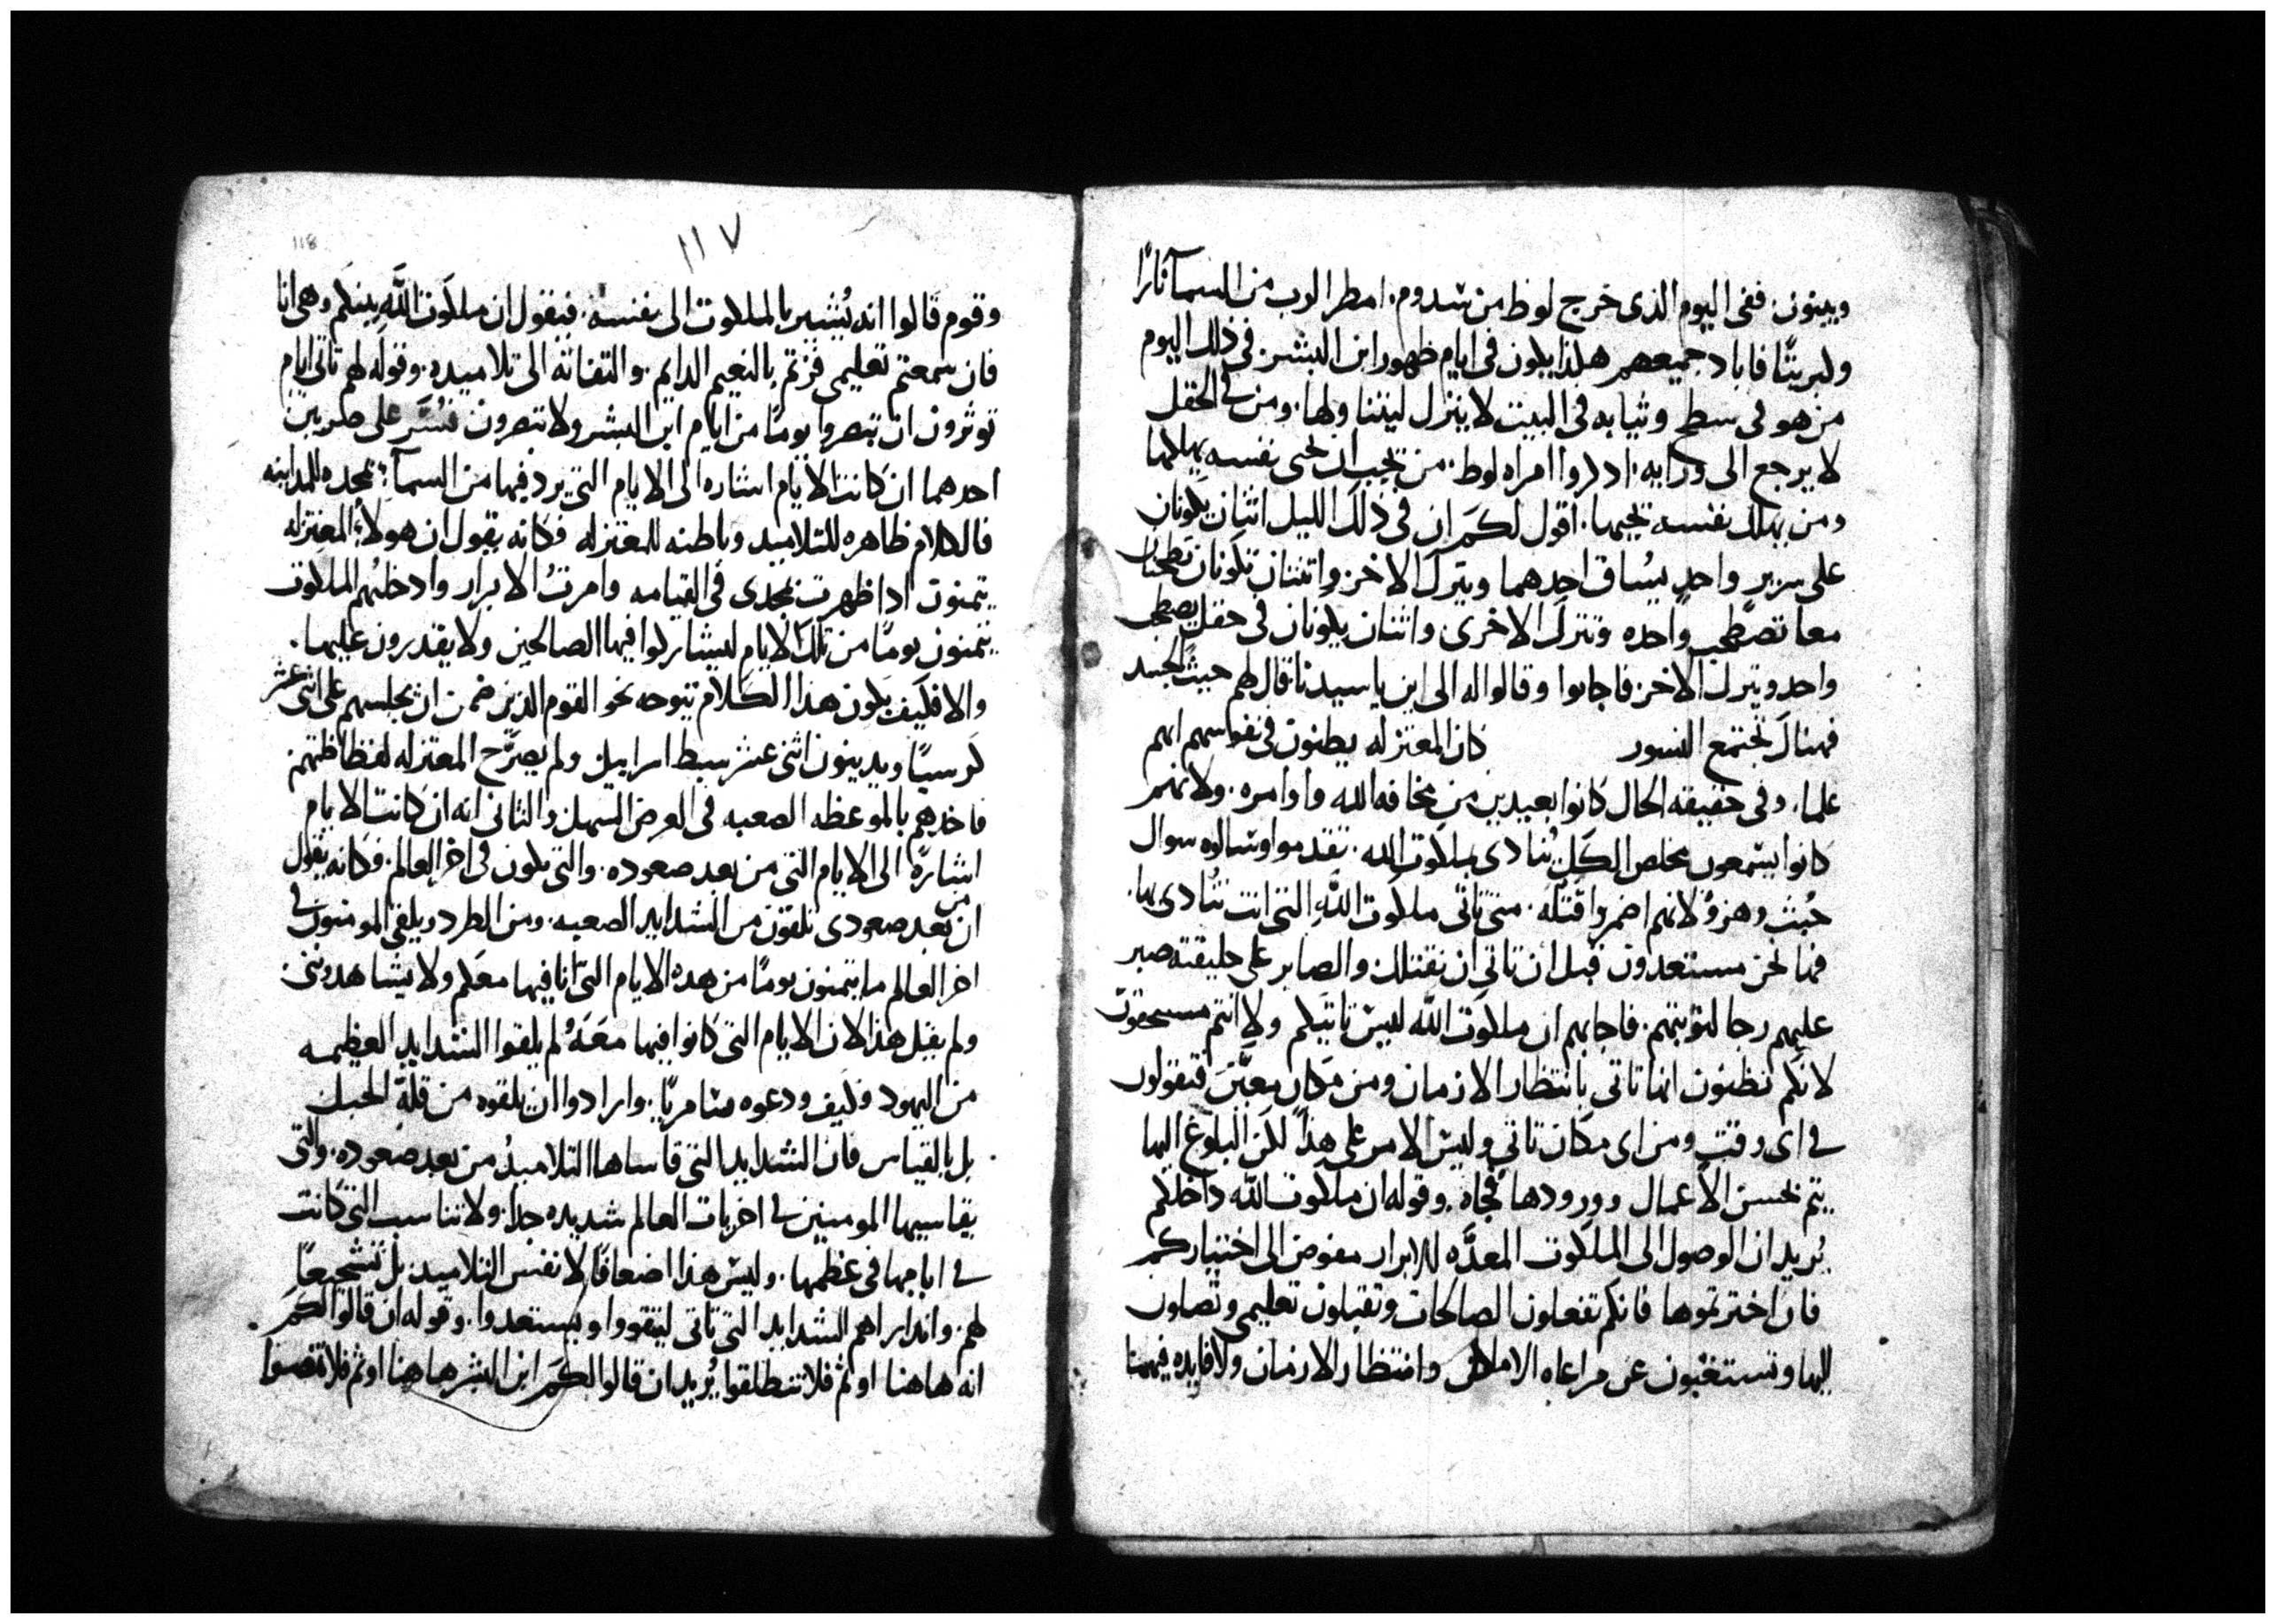 ويبنون. ففى اليوم الذى خرج لوط من سدوم. امطر الرب من السمآ نارًا
وكبريتًا فاباد جميعهم هكذا يكون فى ايام ظهور ابن البشر. فى ذلك اليوم
من هو فى سطح وثيابه فى البيت لا ينزل ليتناولها. ومن فى الحقل
لا يرجع الى ورايه. اذكروا امراه لوط. من يحب ان يحيى نفسه يهلكها
ومن يهلك نفسه يحييها. اقول لكم ان فى ذلك الليل اثنان يكونان
على سرير واحد يُساق احدهما ويترك الاخر. واثنتان تكونان تطحنان
معا تصطحب واحده وتترك الاخرى. واثنان يكونان فى حقل يصطحب
واحد ويترك الاخر. فاجابوا وقالوا له الى اين يا سيدنا قال لهم حيث الجسد
فهناك تجتمع النسور كان المعتزله يظنون فى نفوسهم انهم
علما. وفى حقيقه الحال كانوا بعيدين من مخافه الله واوامره. ولانهم
كانوا يسمعون مخلص الكل يُنادى بملكوت الله. تقدموا وسالوه سوال
خُبث وهزوٌ لانهم اضمروا قتله. متى تاتى ملكوت الله التى انت تنادى بها.
فها نحن مستعدون قبل ان تاتى ان نقتلك والصابر على خليقته صبر
عليهم رجا لتوبتهم. فاجابهم ان ملكوت الله ليس تاتيكم ولا انتم مستحقون
لانكم تظنون انها تاتى بانتظار الازمان ومن مكان معيَّن فتقولون
فى اى وقت ومن اى مكان تاتى وليس الامر على هذا لكن البلوغ اليها
يتم بحسن الاعمال وورودها فجاه. وقوله ان ملكوت الله داخلكم
يُريد ان الوصول الى الملكوت المعدَّه للابرار مفوض الى اختياركم
فان اخترتموها فانكم تفعلون الصالحات وتقبلون تعليمى وتصلون
اليها وتستغنون عن مراعاه الاماكن وانتظار الازمان ولا فايده فيهما
١١٧
118
وقوم قالوا انه يُشير بالملكوت الى نفسه. فيقول ان ملكوت الله بينكم وهى انا
فان سمعتم تعليمى فزتم بالنعيم الدايم. والتفاته الى تلاميذه. وقوله لهم تاتى ايام
توثرون ان تبصروا يومًا من ايام ابن البشر ولا تبصرون فُسَّر على ضربين
احدهما ان كانت الايام اشاره الى الايام التى يرد فيها من السمآء بمجده للمداينه
فالكلام ظاهره للتلاميد وباطنه للمعتزله فكانه يقول ان هولاء المعتزله
يتمنون ادا ظهرت بمجدى فى القيامه وامرتُ الابرار وادخلتهم الملكوت
يتمنون يومًا من تلك الايام ليشاركوا فيها الصالحين ولا يقدرون عليها.
والا فكيف يكون هدا الكلام يتوجه نحو القوم الدين ضمن ان يجلسهم على اثنى عشر
كرسيًا ويدينون اثنى عشر سبط اسراييل ولم يصرَّح المعتزله لفظاظتهم
فاخدهم بالموعظه الصعبه فى العرض السهل والثانى انه ان كانت الايام
اشارهً الى الايام التى من بعد صعوده. والتى تكون فى اخر العالم. فكانه يقول
ان من بعد صعودى تلقون من الشدايد الصعبه. ومن الطرد ويلقى المومنون فى
اخر العالم ما يتمنون يومًا من هده الايام التى انا فيها معكم ولا يشاهدوننى
ولم يقل هذا لان الايام التى كانوا فيها معَهُ لم يلقوا الشدايد العظيمه
من اليهود وكيف ودعوه سامريًا. وارادوا ان يلقوه من قلة الجبل
بل بالقياس فان الشدايد التى قاساها التلاميدُ من بعد صعوده. والتى
يقاسيها المومنين فى اخريات العالم شديده جدا. ولا تناسب التى كانت
فى ايامها فى عظمها. وليس هذا اضعافًا لانفس التلاميد بل تشجيعًا
لهم. واندارا هم الشدايد التى تاتى ليتقووا ويستعدوا. وقوله ان قالوا لكم
انه هاهنا او ثم فلا تنطلقوا يُريد ان قالوا لكم ابن البشر هاهنا او ثم فلا تمضوا